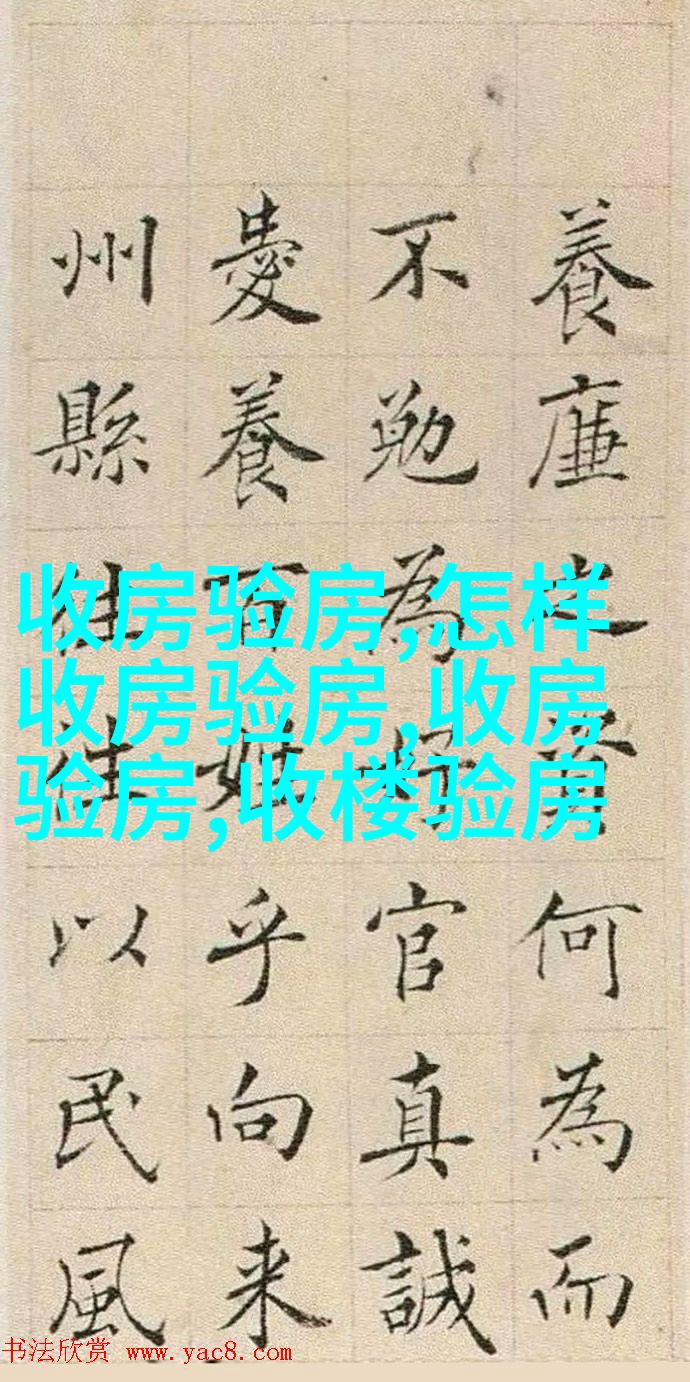 養廉之資何為而
不勉為好官真誠
愛養百姓乎向来
州縣往往以民風
收房验房,怎样
收房验房,收房
验房,收楼验房
书法欣赏 www.yac8.com